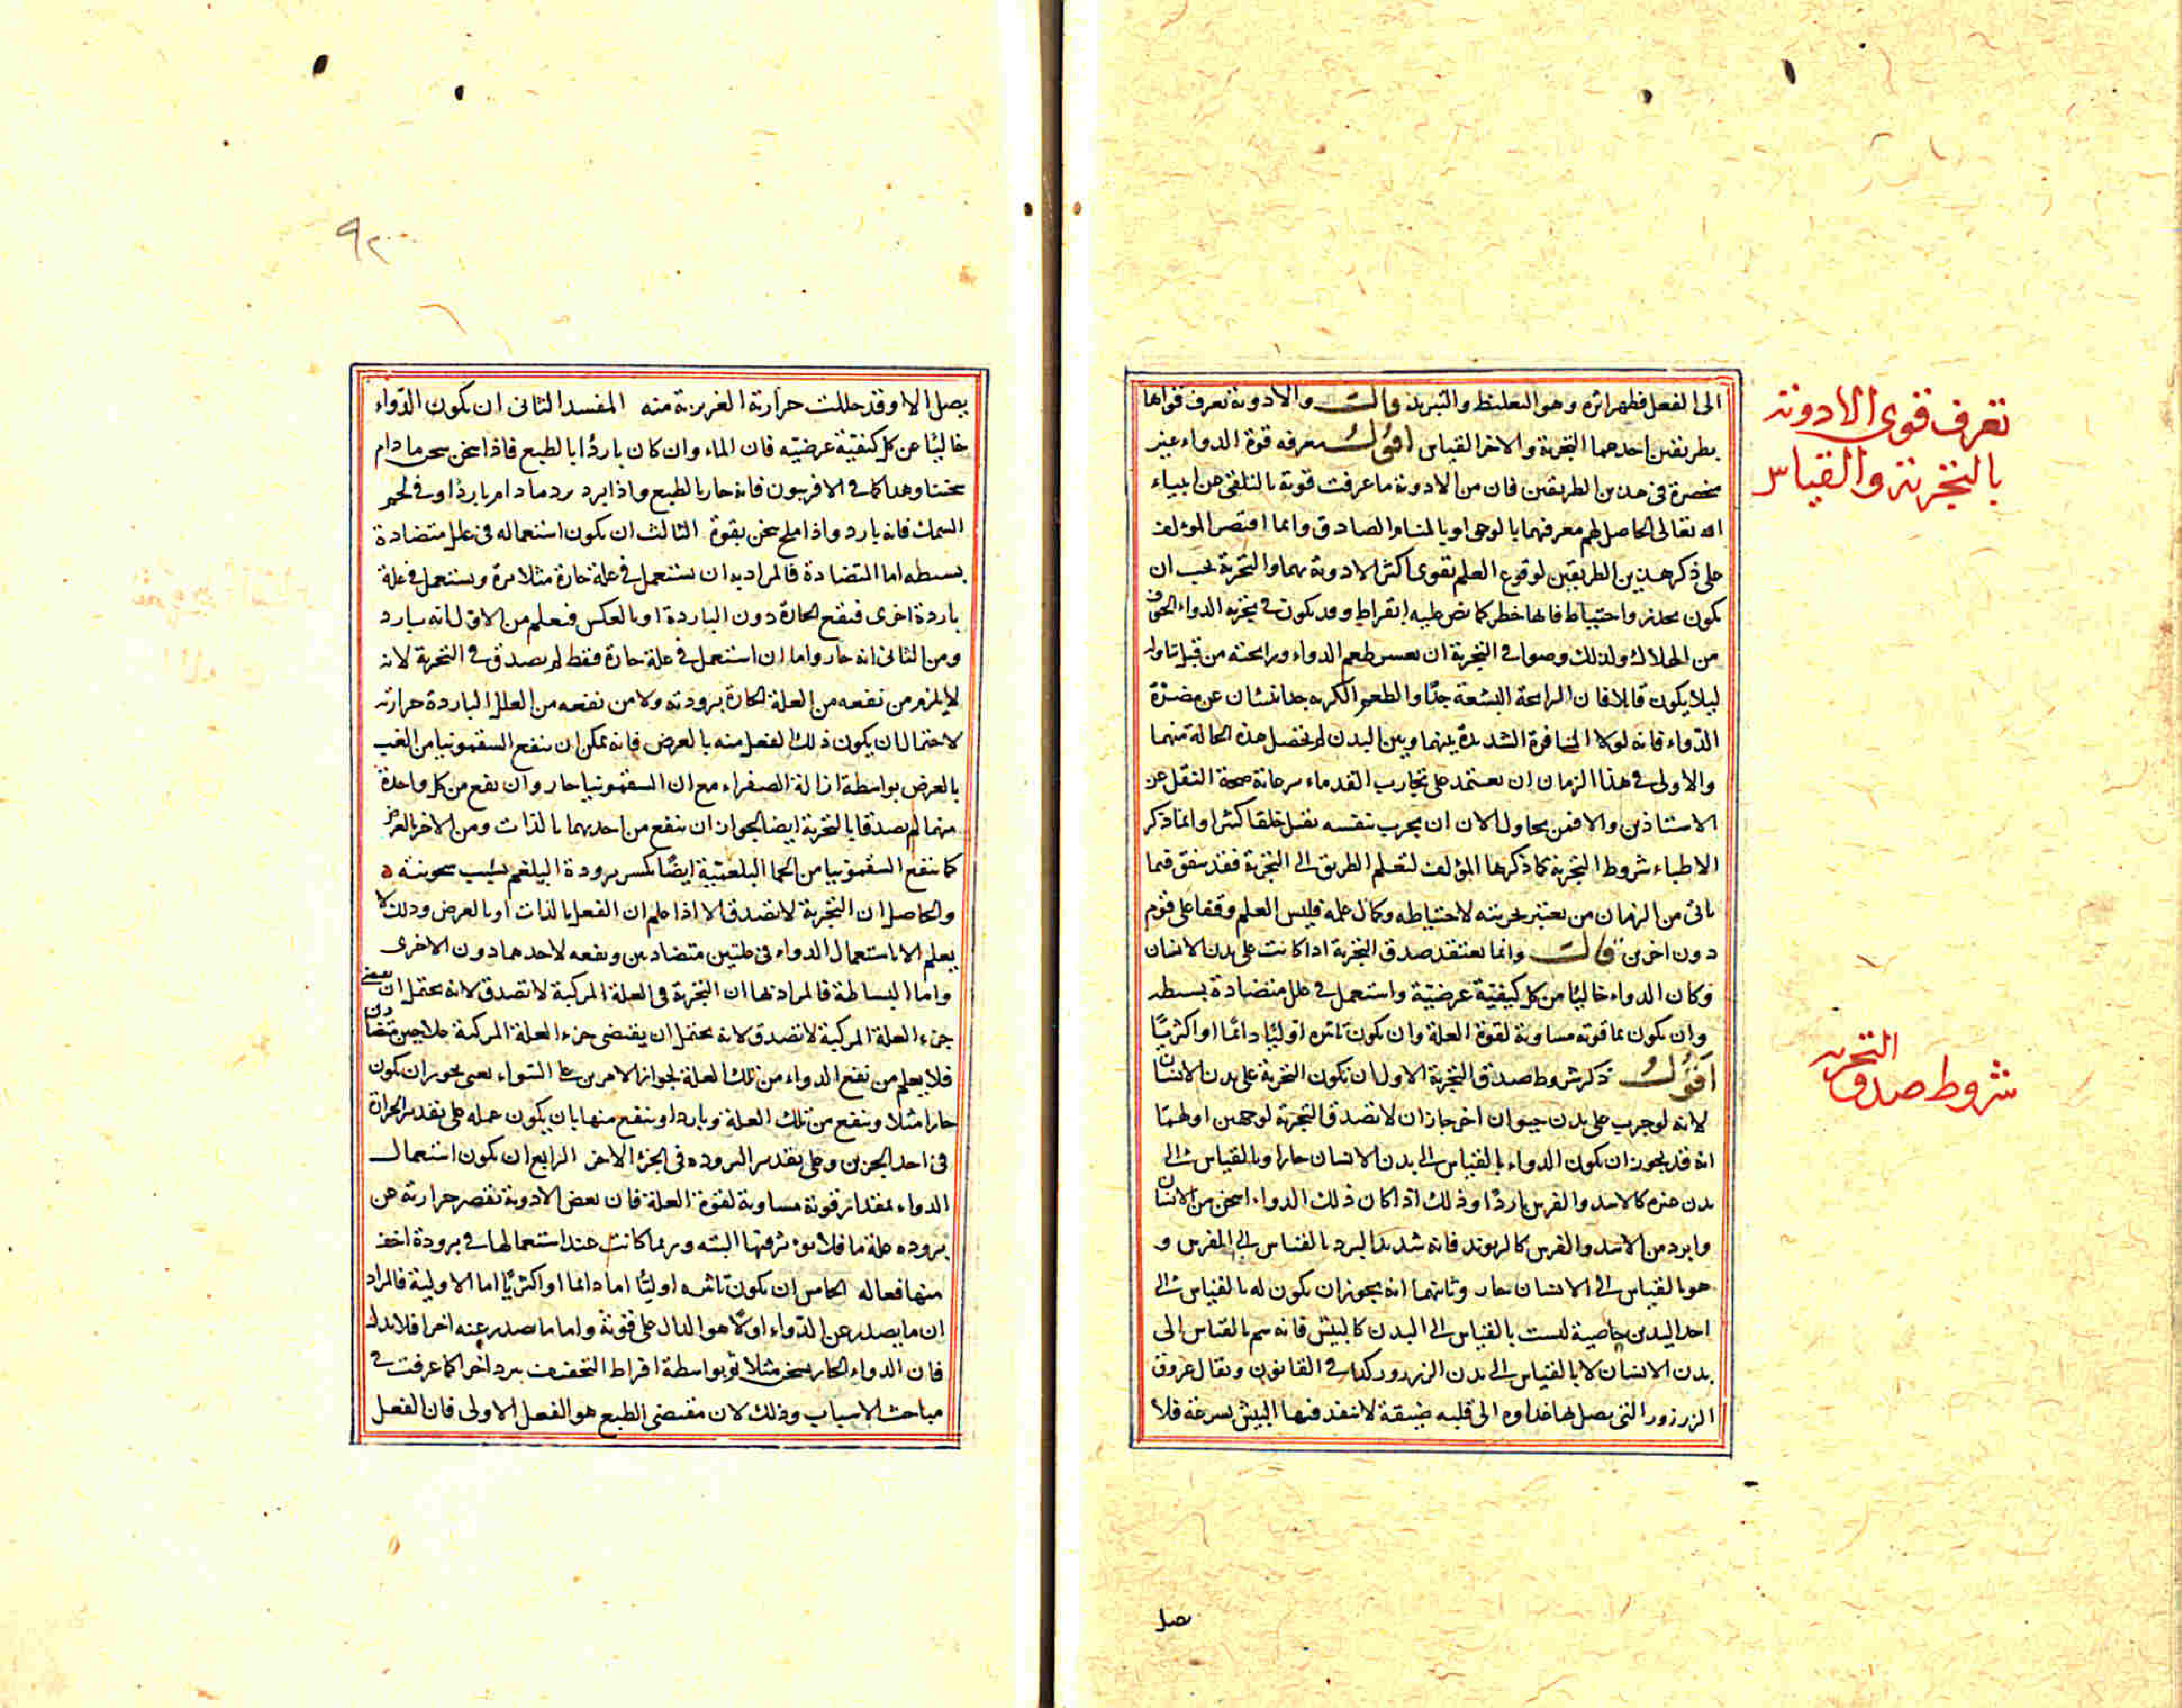 تعرف قوى الادوية
بالتجربة والقياس
الى الفعل فظهر اثره وهو التغليظ والتبريد قالــ والادوية تعرف قواها
بطريقين احدهما التجربة والاخر القياس اقولــ معرفه قوة الدواء غير
منحصرة فى هذين الطريقين فان من الادوية ما عرفت قوته بالتلقى من انبياء
الله تعالى الحاصل لهم معرفتهما بالوحى او بالمنام الصادق وانما اقتصر المؤلف
على ذكر هذين الطريقين لوقوع العلم بقوى اكثر الادوية بهما والتجربة يجب ان
يكون بحذر واحتياط فانها خطر كما نص عليه ابقراط وقد يكون فى تجربة الدواء الخوف
من الهلاك ولذلك وصوا فى التجربة ان طعم الدواء ورايحته من قبل تناوله
ليلا يكون قاتلا فان الرايحة البشعة جدا والطعم الكريه جدا ينبئان عن مضرة
الدواء فانه لولا المنافرة الشديدة بينهما وبين البدن لم تحصل هذه الحالة منهما
والاولى فى هذا الزمان ان يعتمد على تجارب القدماء صحة النقل عن
الاستاذين والا فمن يحاول الان ان يجرب بنفسه يقتل خلقا كثيرا وانما ذكر
الاطباء شروط التجربة كما ذكرها المؤلف لتعلم الطريق الى التجربة فقد يتفق فيما
ياتى من الزمان من يعتبر تجربته لاحتياطه وكمال علمه فليس العلم وقفا على قوم
دون اخرين قالــ وانما يعتقد صدق التجربة اذا كانت على بدن الانسان
وكان الدواء خاليًا من كل كيفية عرضيّة واستعمل فى علل متضادة بسيطه
وان يكون بما قوته مساوية لقوة العلة وان يكون تاثيره اوليًا دائمًا او اكثريًا
شروط صدق التجربه
اقولــ ذكر شروط صدق التجربة الاول ان تكون التجربة على بدن الانسان
لانه لو جرب على بدن حيوان اخر جاز ان لا تصدق التجربة لوجهين اولهما
انه قد يجوز ان يكون الدواء بالقياس الى بدن الانسان حارا وبالقياس الى
بدن غيره كالاسد والفرس باردًا وذلك اذا كان ذلك الدواء اسخن من الانسان
وابرد من الاسد والفرس كالريوند فانه شديد البرد بالقياس الى الفرس و
هو بالقياس الى الانسان حار وثانيهما انه يجوز ان يكون له بالقياس الى
احد البدنين خاصية ليست بالقياس الى البدن كالبيش فانه سم بالقياس الى
بدن الانسان لا بالقياس الى بدن الزرزور كذا فى القانون ويقال عروق
الزرزور التى يصل بها غداوه الى قلبه ضيقة لا ينفد فيها البيش بسرعة فلا
يصل
٩٢
يصل الا وقد حللت حرارته الغريزية منه المفسد الثانى ان يكون الدواء
خاليًا عن كل كيفيّة عرضيّه فان الماء وان كان باردًا بالطبع فاذا سخن يسخن ما دام
سخنا وهذا كما فى الافربيون فانه حار بالطبع واذا برد يرد ما دام باردًا وفى لحم
السمك فانه بارد واذا ملح سخن بقوة الثالث ان يكون استعماله فى علل متضادة
بسيطه اما المتضادة فالمراد به ان يستعمل فى علة حارة مثلا مرة ويستعمل فى علة
باردة اخرى فينفع الحارة دون الباردة او بالعكس فيعلم من الاول انه بارد
ومن الثانى انه حار واما ان استعمل فى علة حارة فقط لم يصدق فى التجربة لانه
لا يلزم من نفعه من العلة الحارة برودته ولا من نفعه من العلل الباردة حرارته
لاحتمال ان يكون ذلك الفعل منه بالعرض فانه يمكن ان ينفع السقمونيا من الغب
بالعرض بواسطة ازالة الصفراء مع ان السقمونيا حار وان نفع من كل واحدة
منهما لم يصدقا بالتجربة ايضا لجواز ان ينفع من احديهما بالذات ومن الاخر بالعرض
كما ينفع السقمونيا من الحما البلغمية ايضًا بكسر برودة البلغم بسبب سخونته
والحاصل ان التجربة لا تصدق الا اذا علم ان الفعل بالذات او بالعرض وذلك لا
يعلم الا باستعمال الدواء فى علتين متضادين ونفعه لاحدهما دون الاخرى
واما البساطة فالمراد بها ان التجربة فى العلة المركبة لا تصدق لانه يحتمل ان
جزء العلة المركبة لا تصدق لانه يحتمل ان يقتضى جزء العلة المركبة علاجين متضادين
فلا يعلم من نفع الدواء من تلك العلة لجواز الامرين على السواء يعنى يجوز ان يكون
حارا مثلا وينفع من تلك العلة وباردا وينفع منها بان يكون عمله على تقدير الحرارة
فى احد الجزين وعلى تقدير البروده فى الجزء الاخر الرابع ان يكون استعمال
الدواء بمقدار قوته مساوية لقوة العلة فان بعض الادوية تقصر حرارته عن
بروده علة ما فلا يوثر فيها البتة وربما كانت عند استعمالها فى برودة اخف
منها فعاله الخامس ان يكون تاثيره اوليًا اما دائما او اكثريًا اما الاولية فالمراد
ان ما يصدر عن الدواء اولًا هو الدال على قوته واما ما صدر عنه اخرا فلا يدل
فان الدواء الحار يسخن مثلا ثم بواسطة افراط التخفيف يبرد اخرا كما عرفت فى
مباحث الاسباب وذلك لان مقتضى الطبع هو الفعل الاولى فان الفعل